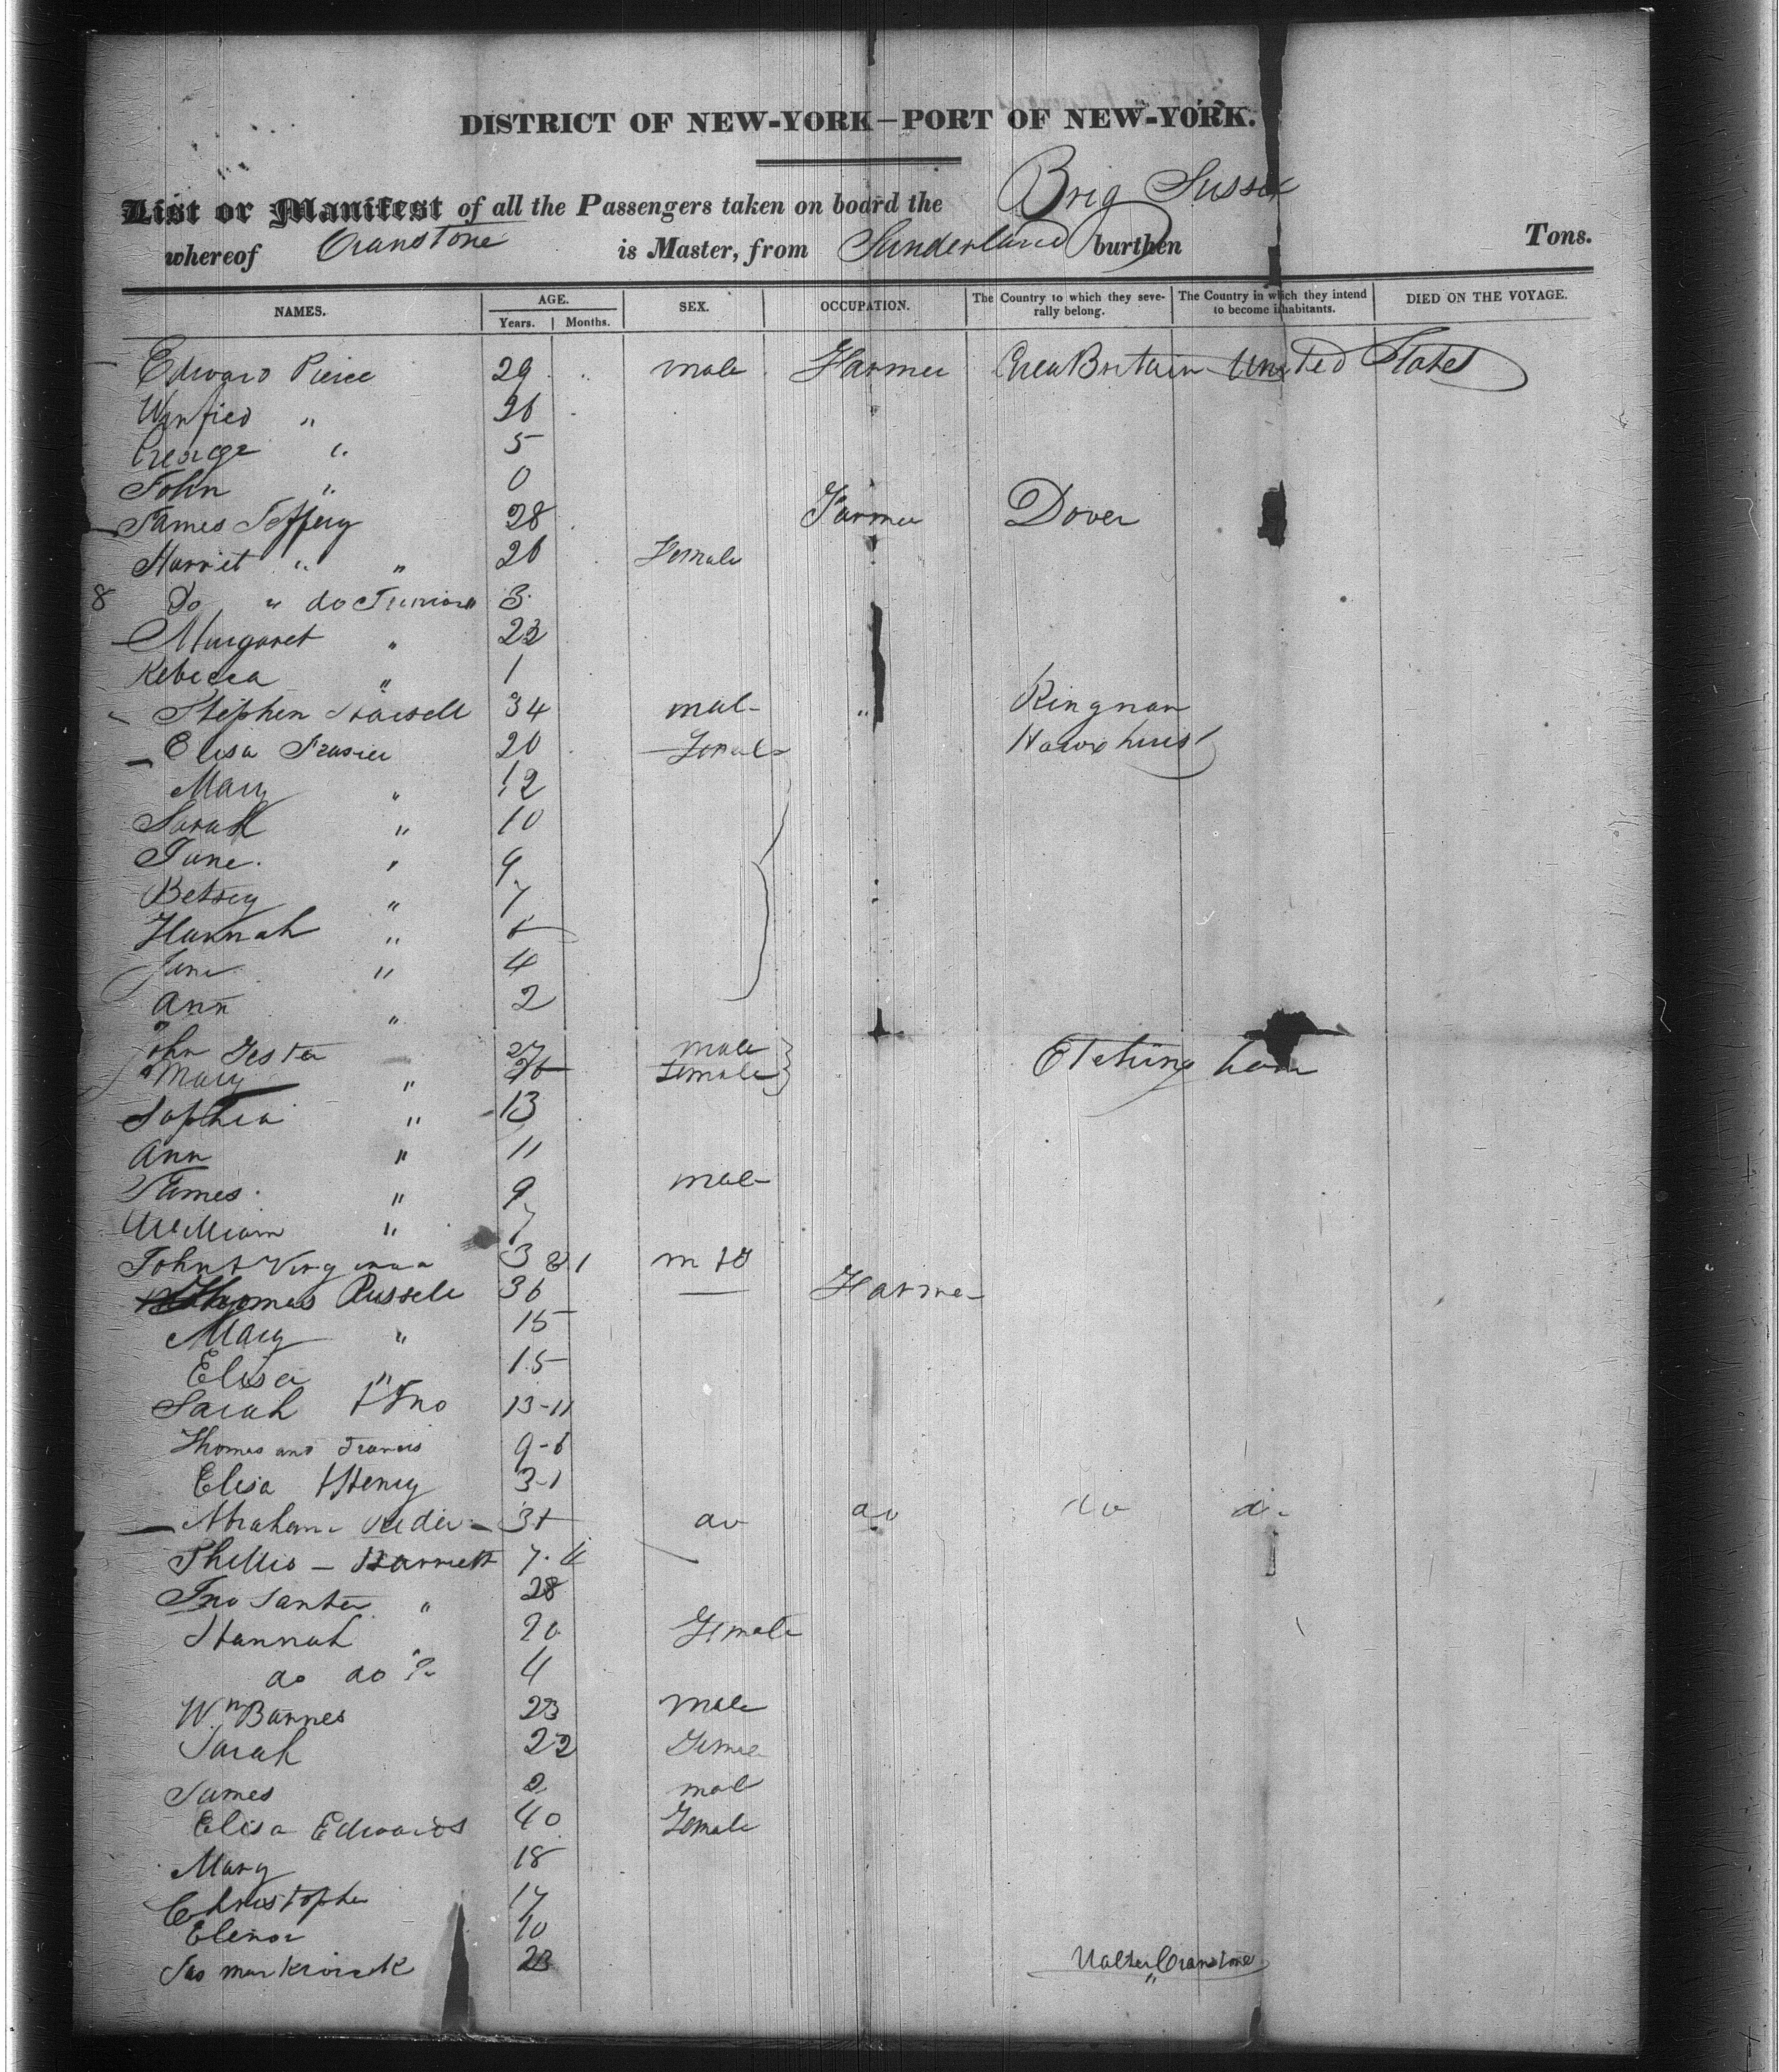 DISTRICT OF NEW-YORK—PORT OF NEW-YORK.
List or Manifest of all the Passengers taken on board the Brig Sussex
whereof Cranstone is Master, from Sunderland burthen Tons.
NAMES. AGE. Years. Months. SEX. OCCUPATION. The Country to which they severally belong. The Country in which they intend to become inhabitants. DIED ON THE VOYAGE.
Edward Pierce 29 male Farmer Great Britain United States
Winfied " 26
George " 5
John " 0
James Jeffery 28 Farmer Dover
Harriet " " 26 Female
8 Do " do Junior " 3
Margaret " 23
Rebecca " 1
Stephen 34 mal "
Elisa Frasier 20 Female Hawxhurst
Mary " 12
Sarah " 10
Jane " 9
Betsey " 7
Hannah "
Jane " 4
Ann " 2
John 27 male Etchingham
Mary " Female
Sophia " 13
Ann " 11
James " 9 mal
William " 7
John & Virginia 3 & 1 m
Thomas Russell 36 — Farmer
Mary " 15
Elisa " 15
Sarah & Jno 13-11
Thomas and Francis 9-6
Elisa & Henry 3-1
Abraham do do do d
Phillis — Harriett 7.4
Jno Santer " 28
Hannah 20 Female
do do 4
Wm Barnes 23 male
Sarah 22 Feme
James 2 mal
Elisa Edwards 40 Female
Mary 18
Christopher 17
Elenor 10
Jas 23
Walter Cranstone